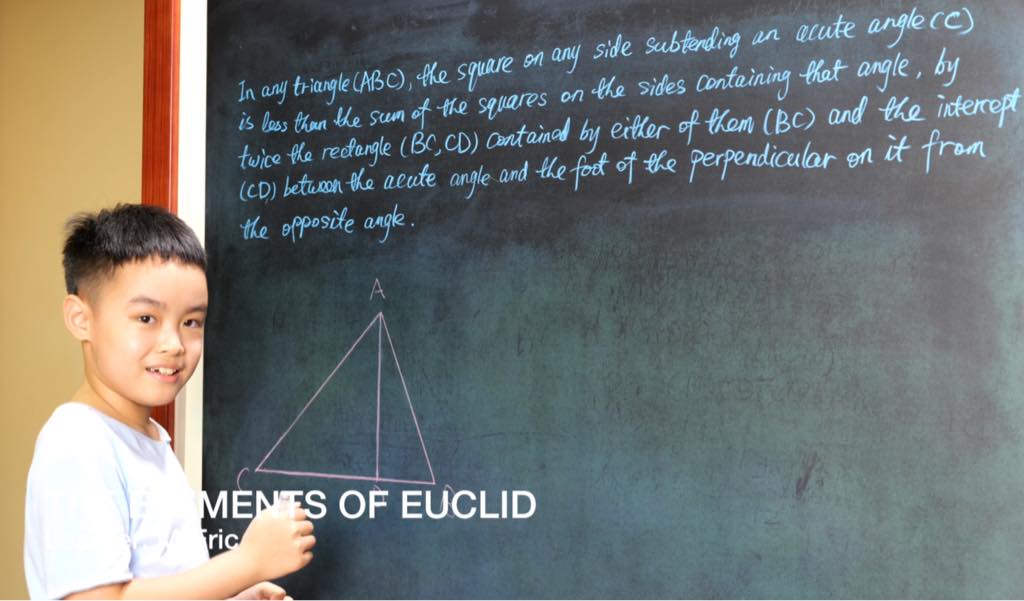 In any triangle (ABC), the square on any side subtending an acute angle (C)
is less than the sum of the squares on the sides containing that angle, by
twice the rectangle (BC, CD) contained by either of them (BC) and the intercept
(CD) between the acute angle and the foot of the perpendicular on it from
the opposite angle.
A
C
MENTS OF EUCLID
Eric